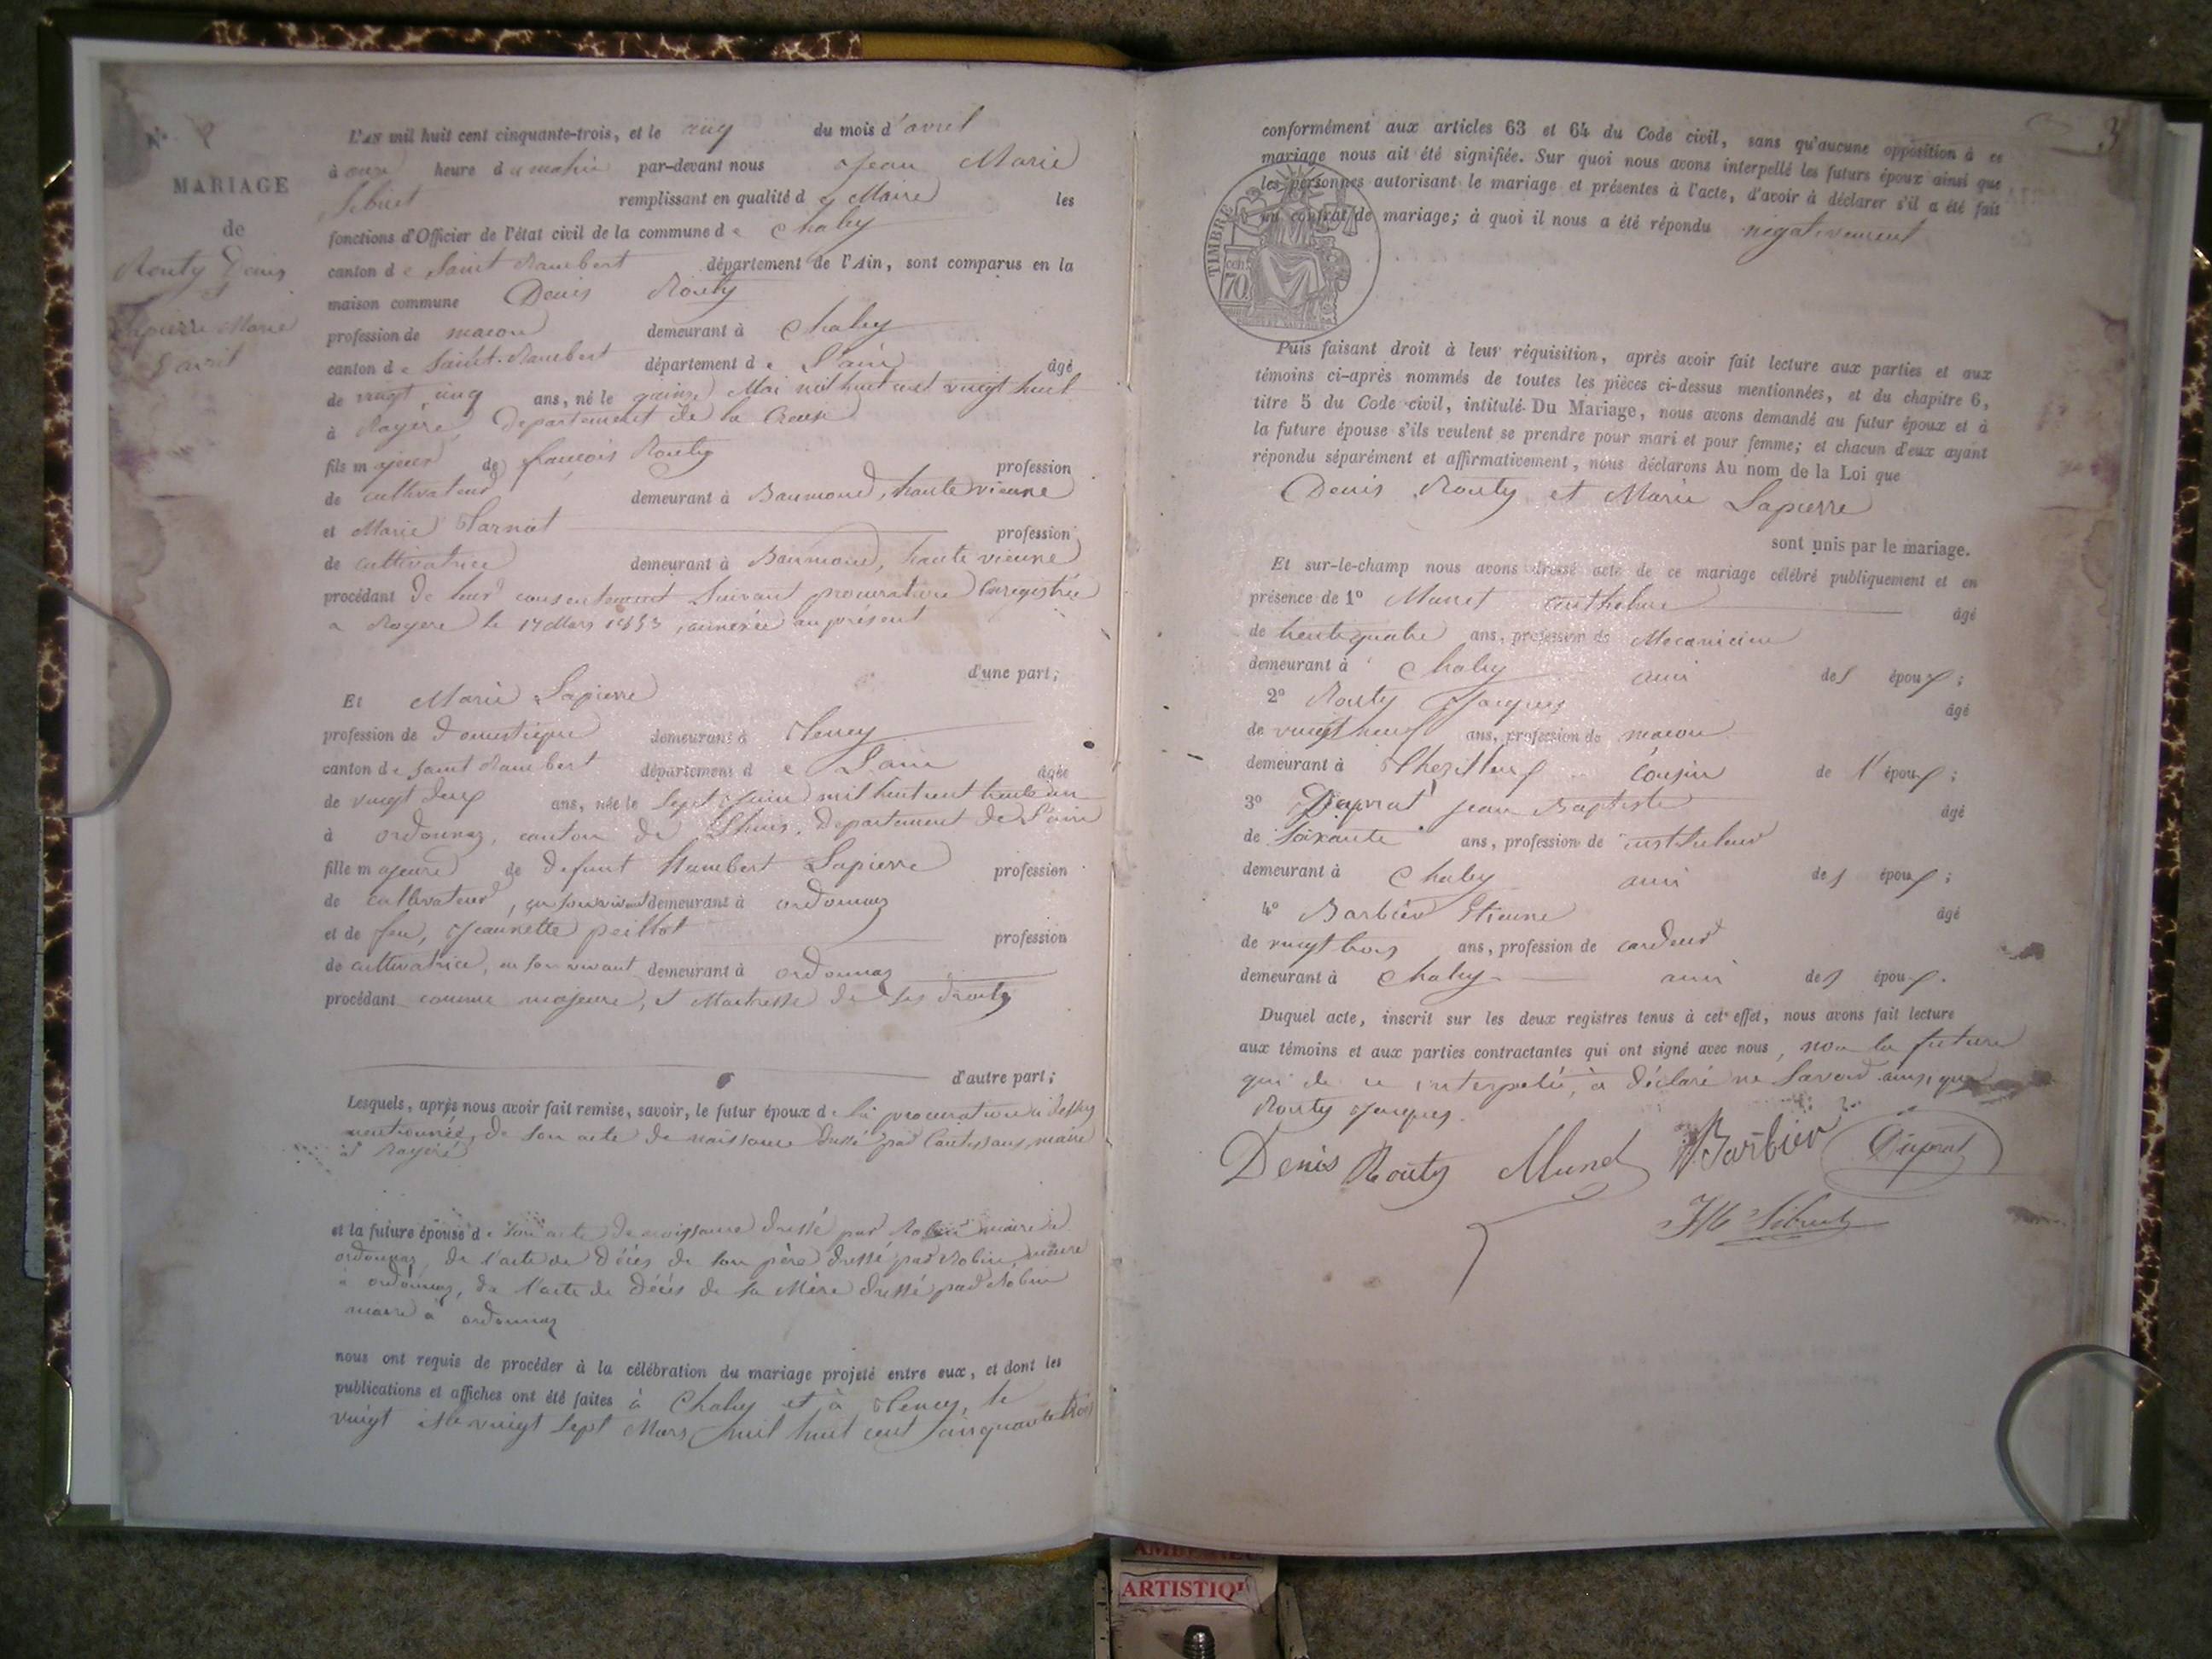 N°
MARIAGE
de
Routy Denis
Lapierre Marie
5 avril
L'AN mil huit cent cinquante-trois, et le cinq du mois d'avril
à onze heure du matin par-devant nous Jean Marie
remplissant en qualité de Maire les
fonctions d'Officier de l'état civil de la commune de Chaley
canton de Saint Rambert département de l'Ain, sont comparus en la
maison commune Denis Routy
profession de macon demeurant à Chaley
canton de Saint-Rambert département de l'ain âgé
de vingt cinq ans, né le quinze Mai mil huit cent vingt huit
à Royère, departement de la Creuse
fils majeur de françois Routy profession
de cultivateur demeurant à haute vienne
et Marie Tarnat profession
de cultivatrice demeurant à haute vienne
procédant de leur consentement suivant procuration enregistrée
a Royere le 17 Mars 1853, annexée au présent
d'une part;
Et Marie Lapierre
profession de domestique demeurant à Tenay
canton de saint Rambert département de L'ain âgée
de vingt deux ans, née le sept Juin mil huit cent trente un
à ordonnaz, canton de Lhuis, département de l'ain
fille majeure de defunt Humbert Lapierre profession
de cultivateur, en son vivant demeurant à ordonnaz
et de feu, Jeannette peillot profession
de cultivatrice, en son vivant demeurant à ordonnaz
procédant comme majeure, et Maitresse de ses droits
d'autre part;
Lesquels, après nous avoir fait remise, savoir, le futur époux de la procuration ci dessus
mentionnée, de son acte de naissance dressé par maire
à Royère
et la future épouse de son acte de naissance dressé par Robin maire a
ordonnaz, de l'acte de décès de son père dressé par Robin, maire
a ordonnaz, de l'acte de décès de sa Mère dressé par Robin
maire a ordonnaz
nous ont requis de procéder à la célébration du mariage projeté entre eux, et dont les
publications et affiches ont été faites à Chaley et à Tenay, le
vingt et le vingt sept Mars mil huit cent cinquante trois
3
conformément aux articles 63 et 64 du Code civil, sans qu'aucune opposition à ce
mariage nous ait été signifiée. Sur quoi nous avons interpellé les futurs époux ainsi que
les personnes autorisant le mariage et présentes à l'acte, d'avoir à déclarer s'il a été fait
un contrat de mariage; à quoi il nous a été répondu négativement
TIMBRE
70
Puis faisant droit à leur réquisition, après avoir fait lecture aux parties et aux
témoins ci-après nommés de toutes les pièces ci-dessus mentionnées, et du chapitre 6,
titre 5 du Code civil, intitulé Du Mariage, nous avons demandé au futur époux et à
la future épouse s'ils veulent se prendre pour mari et pour femme; et chacun d'eux ayant
répondu séparément et affirmativement, nous déclarons Au nom de la Loi que
Denis Routy et Marie Lapierre
sont unis par le mariage.
Et sur-le-champ nous avons dressé acte de ce mariage célébré publiquement et en
présence de 1° Munet anthelme âgé
de trente quatre ans, profession de Mecanicien
demeurant à Chaley ami des époux;
2° Routy Jacques âgé
de vingt neuf ans, profession de macon
demeurant à cousin de l'époux;
3° Duprat jean Baptiste âgé
de Soixante ans, profession de instituteur
demeurant à Chaley ami des époux;
4° Barbier Etienne âgé
de vingt trois ans, profession de cardeur
demeurant à Chaley ami des époux.
Duquel acte, inscrit sur les deux registres tenus à cet effet, nous avons fait lecture
aux témoins et aux parties contractantes qui ont signé avec nous, non la future
qui de ce interpelée, a déclaré ne savoir ainsi que
Routy Jacques.
Denis Routy Munet Barbier Duprat
ARTISTIQU